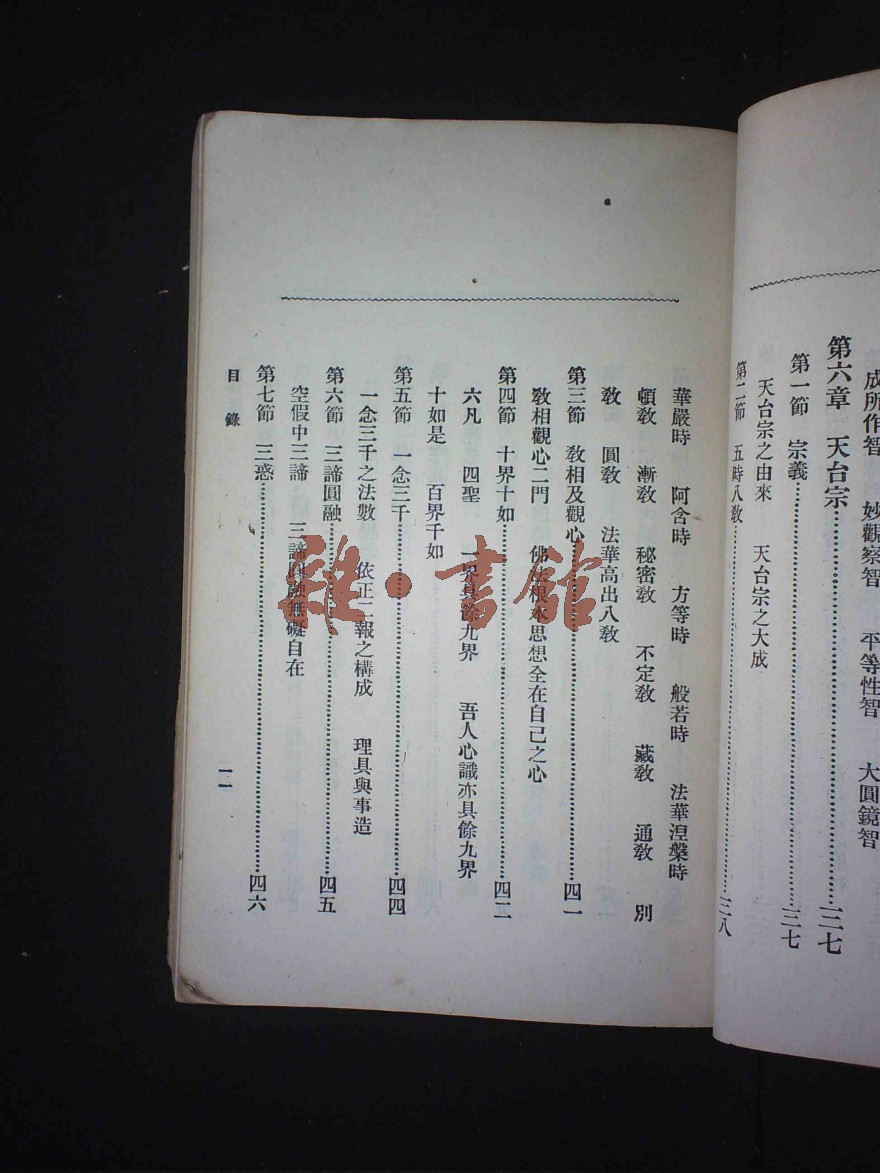 成所作智　妙觀察智　平等性智　大圓鏡智
第六章　天台宗……三七
第一節　宗義……三七
天台宗之由來　天台宗之大成
第二節　五時八敎……三八
華嚴時　阿含時　方等時　般若時　法華涅槃時
頓敎　漸敎　秘密敎　不定敎　藏敎　通敎　別
敎　圓敎　法華高出八敎
第三節　敎相及觀心……四一
敎相觀心二門　佛法根本思想全在自己之心
第四節　十界十如……四二
六凡　四聖　一界具餘九界　吾人心識亦具餘九界
十如是　百界千如
第五節　一念三千……四四
一念三千之法數　依正二報之構成　理具與事造
第六節　三諦圓融……四五
空假中三諦　三諦圓融無礙自在
第七節　三惑……四六
目錄
一一
雜·書館